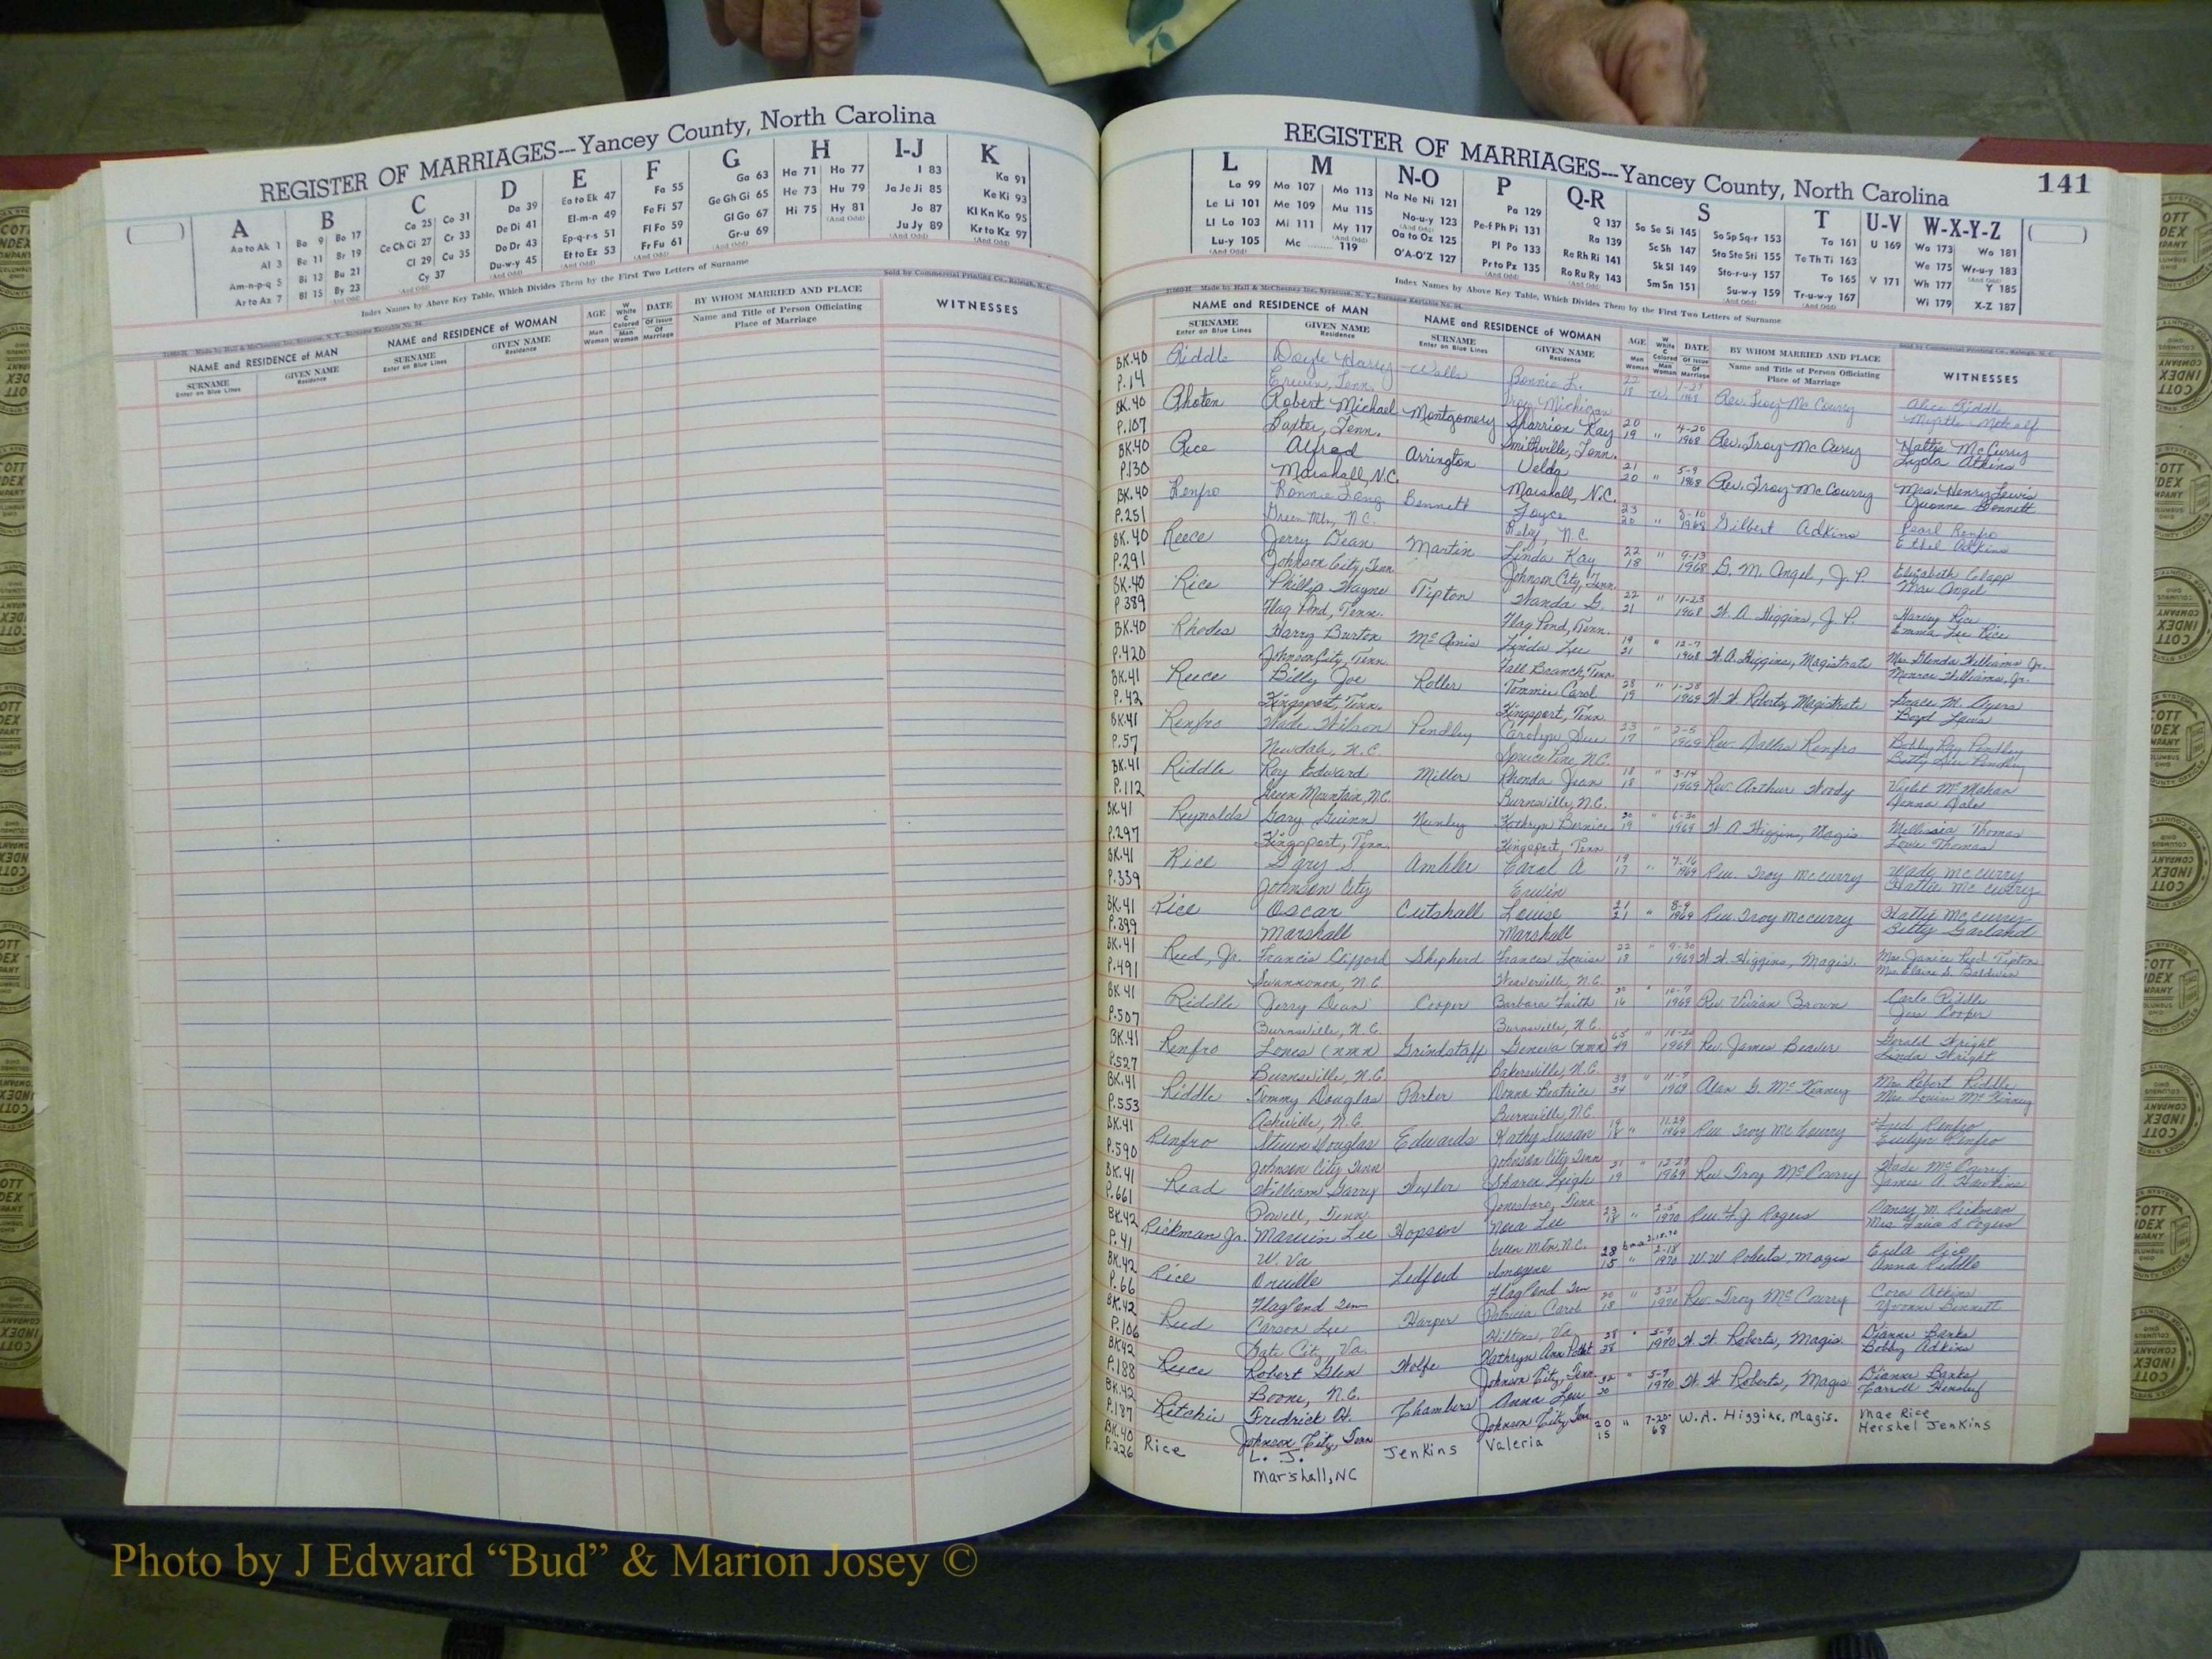 REGISTER OF MARRIAGES---Yancey County, North Carolina
A B C D E F G H I-J K
Aa to Ak 1
Al 3
Am-n-p-q 5
Ar to Az 7
Ba 9 Bo 17
Be 11 Br 19
Bi 13 Bu 21
Bl 15 By 23
Ca 25 Co 31
Ce Ch Ci 27 Cr 33
Cl 29 Cu 35
Cy 37
Da 39
De Di 41
Do Dr 43
Du-w-y 45
Ea to Ek 47
El-m-n 49
Ep-q-r-s 51
Et to Ez 53
Fa 55
Fe Fi 57
Fl Fo 59
Fr Fu 61
Ga 63
Ge Gh Gi 65
Gl Go 67
Gr-u 69
Ha 71 Ho 77
He 73 Hu 79
Hi 75 Hy 81
I 83
Ja Je Ji 85
Jo 87
Ju Jy 89
Ka 91
Ke Ki 93
Kl Kn Ko 95
Kr to Kz 97
Index Names by Above Key Table, Which Divides Them by the First Two Letters of Surname
Sold by Commercial Printing Co., Raleigh, N. C.
NAME and RESIDENCE of MAN
SURNAME
Enter on Blue Lines
GIVEN NAME
Residence
NAME and RESIDENCE of WOMAN
SURNAME
Enter on Blue Lines
GIVEN NAME
Residence
AGE
Man
Woman
W
White
C
Colored
Man
Woman
DATE
Of Issue
Of
Marriage
BY WHOM MARRIED AND PLACE
Name and Title of Person Officiating
Place of Marriage
WITNESSES
REGISTER OF MARRIAGES---Yancey County, North Carolina
141
L M N-O P Q-R S T U-V W-X-Y-Z
La 99
Le Li 101
Ll Lo 103
Lu-y 105
Ma 107 Mo 113
Me 109 Mu 115
Mi 111 My 117
Mc 119
Na Ne Ni 121
No-u-y 123
Oa to Oz 125
O'A-O'Z 127
Pa 129
Pe-f Ph Pi 131
Pl Po 133
Pr to Pz 135
Q 137
Ra 139
Re Rh Ri 141
Ro Ru Ry 143
Sa Se Si 145 So Sp Sq-r 153
Sc Sh 147 Sta Ste Sti 155
Sk Sl 149 Sto-r-u-y 157
Sm Sn 151 Su-w-y 159
Ta 161
Te Th Ti 163
To 165
Tr-u-w-y 167
U 169
V 171
Wa 173 Wo 181
We 175 Wr-u-y 183
Wh 177 Y 185
Wi 179 X-Z 187
Index Names by Above Key Table, Which Divides Them by the First Two Letters of Surname
NAME and RESIDENCE of MAN
SURNAME
Enter on Blue Lines
GIVEN NAME
Residence
NAME and RESIDENCE of WOMAN
SURNAME
Enter on Blue Lines
GIVEN NAME
Residence
AGE
Man
Woman
W
White
C
Colored
Man
Woman
DATE
Of Issue
Of
Marriage
BY WHOM MARRIED AND PLACE
Name and Title of Person Officiating
Place of Marriage
WITNESSES
BK.40 Riddle Doyle Harry Walls Bonnie L. 22 Rev. Troy McCourry Alice Riddle
P.14 Erwin, Tenn. Troy, Michigan 18 W. Myrtle Metcalf
BK.40 Rhoten Robert Michael Montgomery Sharrion Kay 20 4-20 Rev. Troy McCurry Hattie McCurry
P.107 Baxter, Tenn. Smithville, Tenn. 19 " 1968 Lyda Atkins
BK.40 Rice Alfred Arrington Velda 21 5-9 Rev. Troy McCourry Mrs. Henry Lewis
P.130 Marshall, N.C. Marshall, N.C. 20 " 1968 Bennett
BK.40 Renfro Ronnie Bennett Joyce 23 8-10 Gilbert Adkins Pearl Renfro
P.251 Green Mtn, N.C. Relief, N.C. 20 " 1968 Ethel Atkins
BK.40 Reece Jerry Dean Martin Linda Kay 22 " 9-13 G. M. Angel, J.P. Elizabeth Clapp
P.291 Johnson City, Tenn. Johnson City, Tenn. 18 1968 Mae Angel
BK.40 Rice Phillip Wayne Tipton Wanda G. 22 " 11-23 W. A. Higgins, J.P. Harvey Rice
P.389 Flag Pond, Tenn. Flag Pond, Tenn. 21 1968 Emma Lee Rice
BK.40 Rhodes Harry Burton Linda Lee 19 " 12-7 W. A. Higgins, Magistrate Mrs. Glenda Williams Jr.
P.420 Johnson City, Tenn. Fall Branch, Tenn. 21 1968 Monroe Williams, Jr.
BK.41 Reece Billy Joe Roller Tommie Carol 28 " 1-28 W. W. Roberts, Magistrate Grace M. Ayers
P.42 Kingsport, Tenn. Kingsport, Tenn. 19 1969 Boyd Lewis
BK.41 Renfro Wade Wilson Pendley Carolyn Sue 23 " 2-5 Rev. Dallas Renfro Bobby Ray Pendley
P.57 Newdale, N.C. Spruce Pine, N.C. 17 1969 Betty Sue Pendley
BK.41 Riddle Roy Edward Miller Rhonda Jean 18 " 3-14 Rev. Arthur Woody Violet McMahan
P.112 Green Mountain, N.C. Burnsville, N.C. 18 1969
BK.41 Reynolds Gary Guinn Nunley Kathryn Bernice 20 " 6-30 W. A. Higgin, Magis Mellissia Thomas
P.297 Kingsport, Tenn. Kingsport, Tenn 19 1969 Thomas
BK.41 Rice Gary S. Ambler Carol A 19 7-16 Rev. Troy McCurry Wade McCurry
P.339 Johnson City Erwin 17 " 1969 Hattie McCurry
BK.41 Rice Oscar Cutshall Louise 21 8-9 Rev. Troy McCurry Hattie McCurry
P.399 Marshall Marshall 21 " 1969 Betty Garland
BK.41 Reed, Jr. Francis Clifford Shepherd Frances Louise 22 " 9-30 Higgins, Magis. Mrs. Janice Reed Tipton
P.491 Swannanoa, N.C. Weaverville, N.C. 18 1969 Mrs. Elaine S. Baldwin
BK 41 Riddle Jerry Dean Cooper Barbara Faith " 10-7 Rev. Vivian Brown Carlo Riddle
P.507 Burnsville, N.C. Burnsville, N.C. 16 1969 Cooper
BK.41 Renfro (nmn) Grindstaff Geneva (nmn) 65 " Rev. James Beaver Gerald Wright
P.527 Burnsville, N.C. Bakersville, N.C. 49 1969 Linda Wright
BK.41 Riddle Tommy Douglas Parker Donna Beatrice 39 " 11-7 Alan G. McKinney Mrs. Robert Riddle
P.553 Asheville, N.C. Burnsville, N.C. 34 1969 Mrs. Louise McKinney
BK.41 Renfro Steven Douglas Edwards Kathy Susan 19 11.29 Rev. Troy McCourry Fred Renfro
P.590 Johnson City Tenn Johnson City Tenn 18 " 1969 Evelyn Renfro
BK.41 Read William Garry Hexler Sharen Leigh 21 " 12-29 Rev Troy McCurry Wade McCurry
P.661 Powell, Tenn. Jonesboro, Tenn 19 1969 James A. Hawkins
BK.42 Rickman Jr. Marvin Lee Hopson Nora Lee 23 2-5 Rev. F.J. Rogers Nancy M. Rickman
P.41 W. Va Green Mtn, N.C. 18 " 1970 Rogers
BK.42 Rice Orville Ledford Imogene 28 2-18 W.W. Roberts, Magis Eula Rice
P.66 Flag Pond Tenn Flag Pond Ten 15 " 1970 Anna Riddle
BK.42 Reed Carson Lee Harper Patricia Carol 20 " 3-21 Rev. Troy McCurry Cora Atkins
P.106 Gate City, Va. Hiltons, Va 18 1970 Yvonne Bennett
BK42 Reece Robert Glen Wolfe Kathryn Ann 28 " 5-9 W. W. Roberts, Magis. Dianne Banks
P.188 Boone, N.C. Johnson City, Tenn. 28 1970 Bobby Adkins
BK.42 Ritchie Fredrick H. Chambers Anna Lou 32 " 5-9 W. W. Roberts, Magis. Dianne Banks
P.187 Johnson City, Tenn Johnson City, Tenn 30 1970 Carroll Hensley
BK.40 Rice L. J. Jenkins Valeria 20 " 7-20- W.A. Higgins, Magis. Mae Rice
P.226 Marshall, NC 15 68 Hershel Jenkins
Photo by J Edward “Bud” & Marion Josey ©